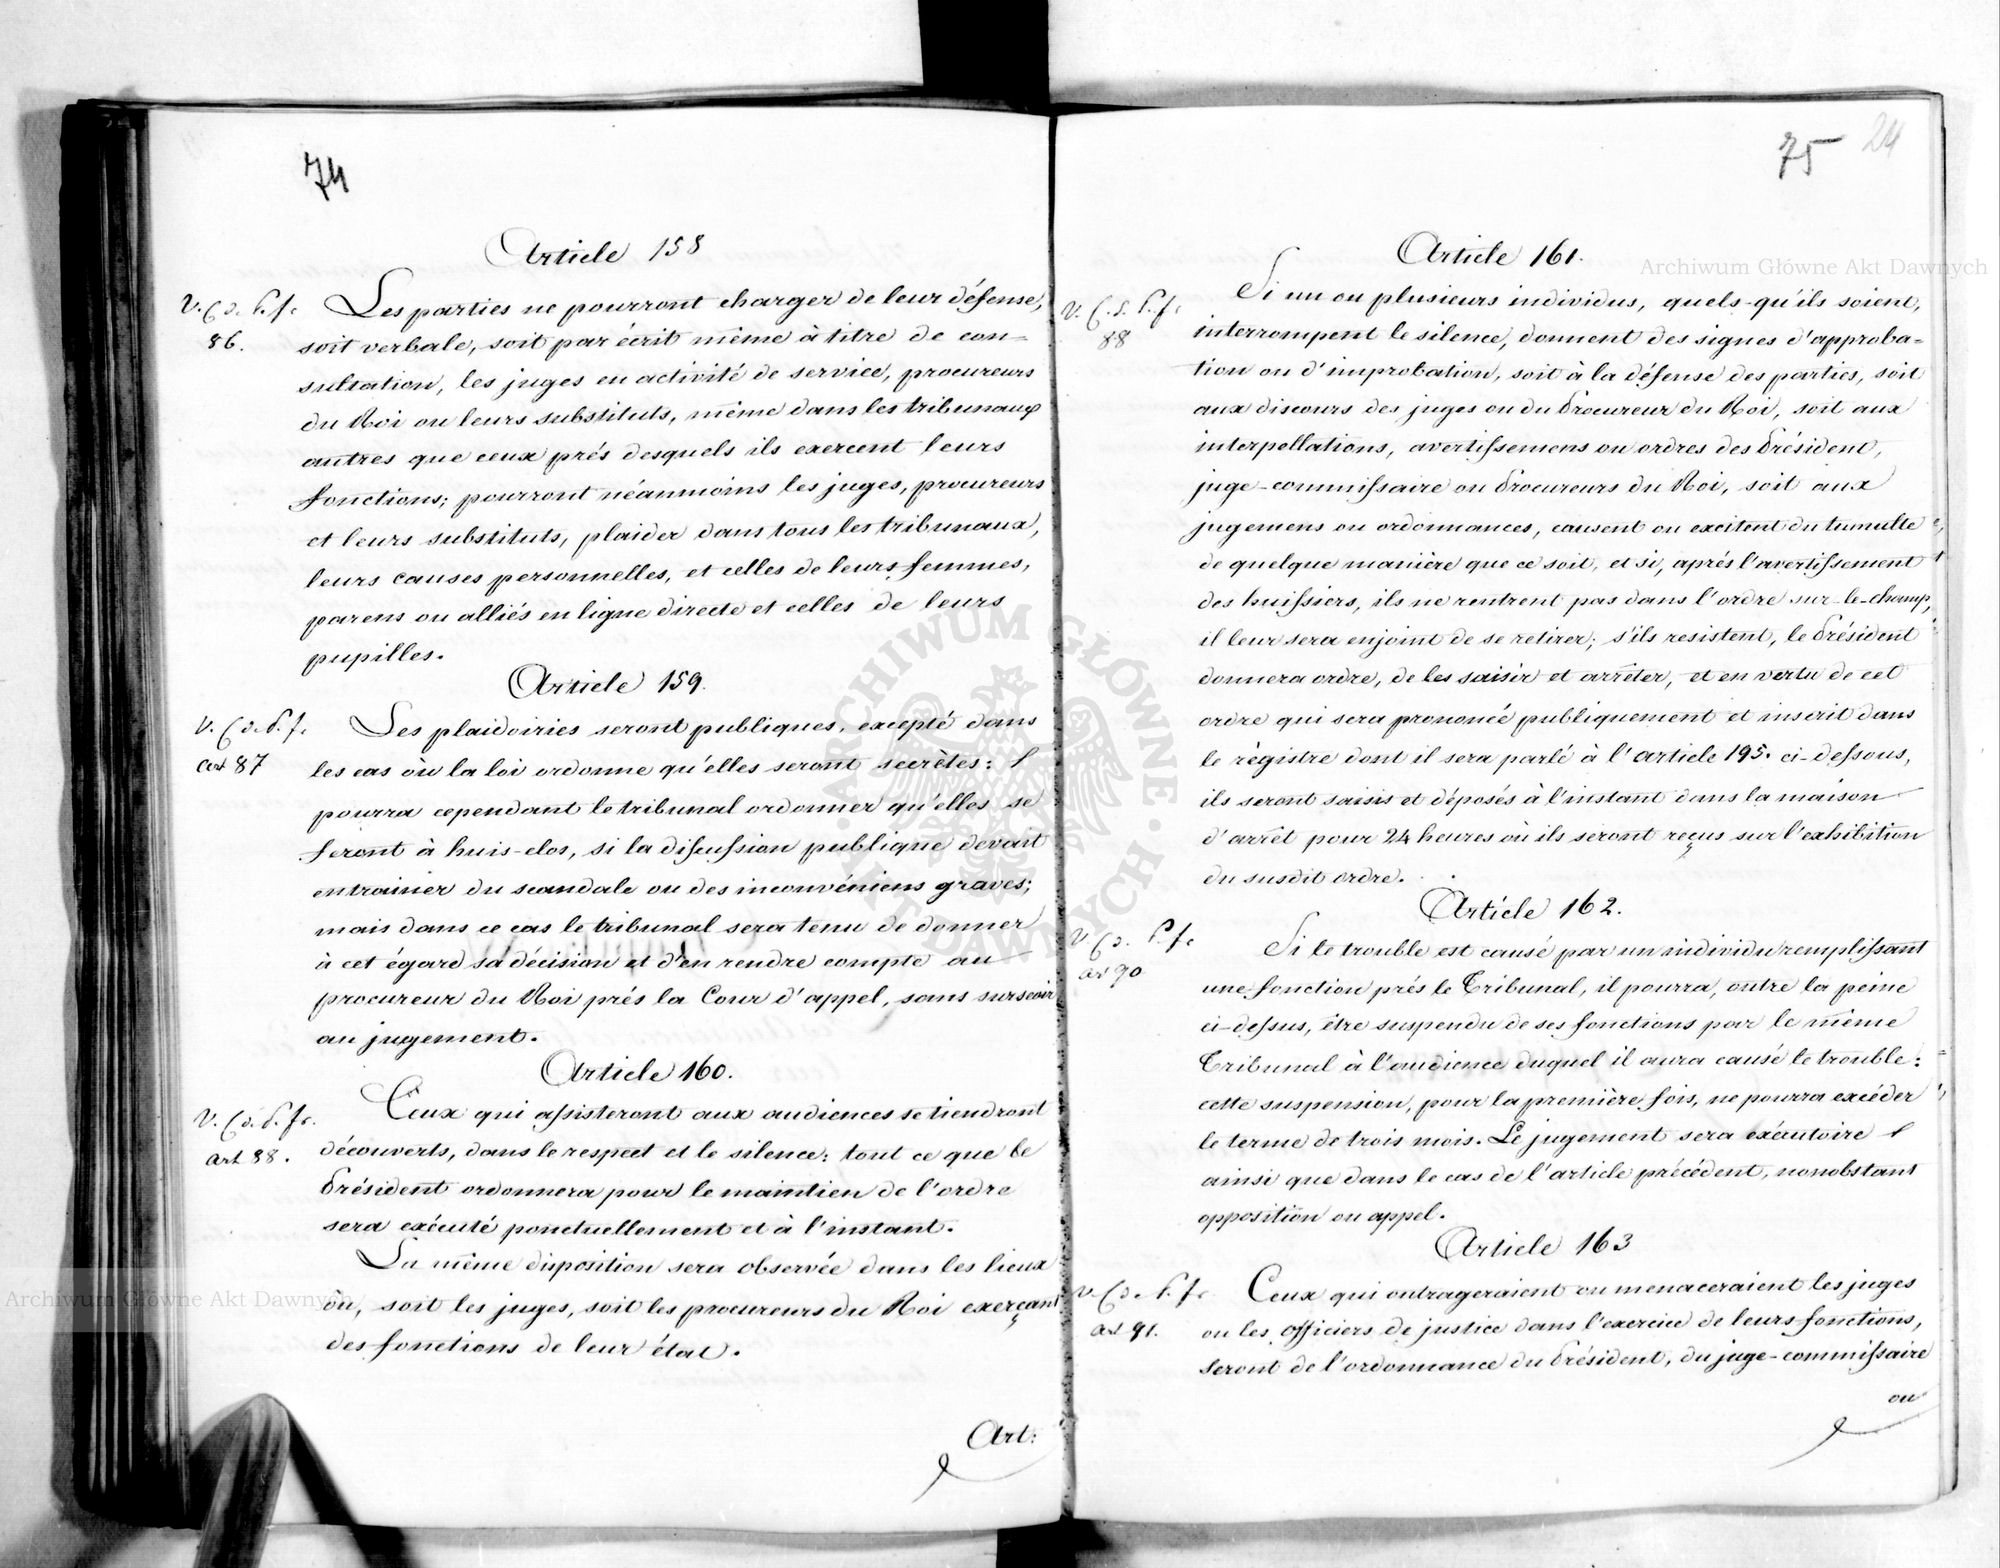 74
Article 158
V. C. d. P. f.
86.
Les parties ne pourront charger de leur défense,
soit verbale, soit par écrit même à titre de con-
sultation, les juges en activité de service, procureurs
du Roi ou leurs substituts, même dans les tribunaux
autres que ceux prés desquels ils exercent leurs
fonctions; pourront néanmoins les juges, procureurs
et leurs substituts, plaider dans tous les tribunaux,
leurs causes personnelles, et celles de leurs femmes,
parens ou alliés en ligne directe et celles de leurs
pupilles.
Article 159.
V. C. d. P. f.
art 87
Les plaidoiries seront publiques, excepté dans
les cas où la loi ordonne qu'elles seront secrètes:
pourra cependant le tribunal ordonner qu'elles se
feront à huis-clos, si la discussion publique devait
entrainer du scandale ou des inconvéniens graves;
mais dans ce cas le tribunal sera tenu de donner
à cet égard sa décision et d'en rendre compte au
procureur du Roi prés la Cour d'appel, sans surseoir
au jugement.
Article 160.
V. C. d. P. fr.
art 88.
Ceux qui assisteront aux audiences se tiendront
découverts, dans le respect et le silence: tout ce que le
Président ordonnera pour le maintien de l'ordre
sera exécuté ponctuellement et à l'instant.
La même disposition sera observée dans les lieux
où, soit les juges, soit les procureurs du Roi exerçant
des fonctions de leur état.
Art:
75 24
Article 161.
V. C. d. P. f.
88
Si un ou plusieurs individus, quels-qu'ils soient,
interrompent le silence, donnent des signes d'approba=
tion ou d'improbation, soit à la défense des parties, soit
aux discours des juges ou du Procureur du Roi, soit aux
interpellations, avertissemens ou ordres des Président,
juge-commissaire ou Procureurs du Roi, soit aux
jugemens ou ordonnances, causent ou excitent du tumulte
de quelque manière que ce soit, et si, aprés l'avertissement
des huissiers, ils ne rentrent pas dans l'ordre sur-le-champ,
il leur sera enjoint de se retirer; s'ils resistent, le Président
donnera ordre, de les saisir et arrêter, et en vertu de cet
ordre qui sera prononcé publiquement et inscrit dans
le règistre dont il sera parlé à l'article 195. ci-dessous,
ils seront saisis et déposés à l'instant dans la maison
d'arrêt pour 24 heures où ils seront reçus sur l'exhibition
du susdit ordre.
Article 162.
V. C. d. P. f.
art 90
Si le trouble est causé par un individu remplissant
une fonction prés le Tribunal, il pourra, outre la peine
ci-dessus, être suspendu de ses fonctions par le même
Tribunal à l'audience duquel il aura causé le trouble:
cette suspension, pour la première fois, ne pourra excéder
le terme de trois mois. Le jugement sera exécutoire
ainsi que dans le cas de l'article précédent, nonobstant
opposition ou appel.
Article 163
V. C. d. P. f.
art 91.
Ceux qui outrageraient ou menaceraient les juges
ou les officiers de justice dans l'exercice de leurs fonctions,
seront de l'ordonnance du Président, du juge-commissaire
ou
Archiwum Główne Akt Dawnych
Archiwum Główne Akt Dawnych
ARCHIWUM GŁÓWNE AKT DAWNYCH